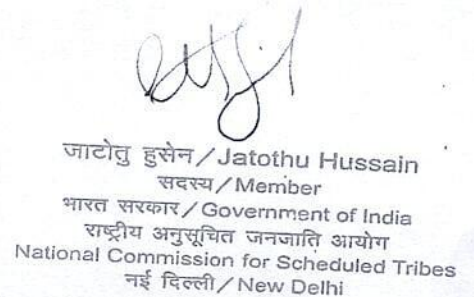 जाटोतु हुसेन/Jatothu Hussain
सदस्य/Member
भारत सरकार/Government of India
राष्ट्रीय अनुसूचित जनजाति आयोग
National Commission for Scheduled Tribes
नई दिल्ली/New Delhi